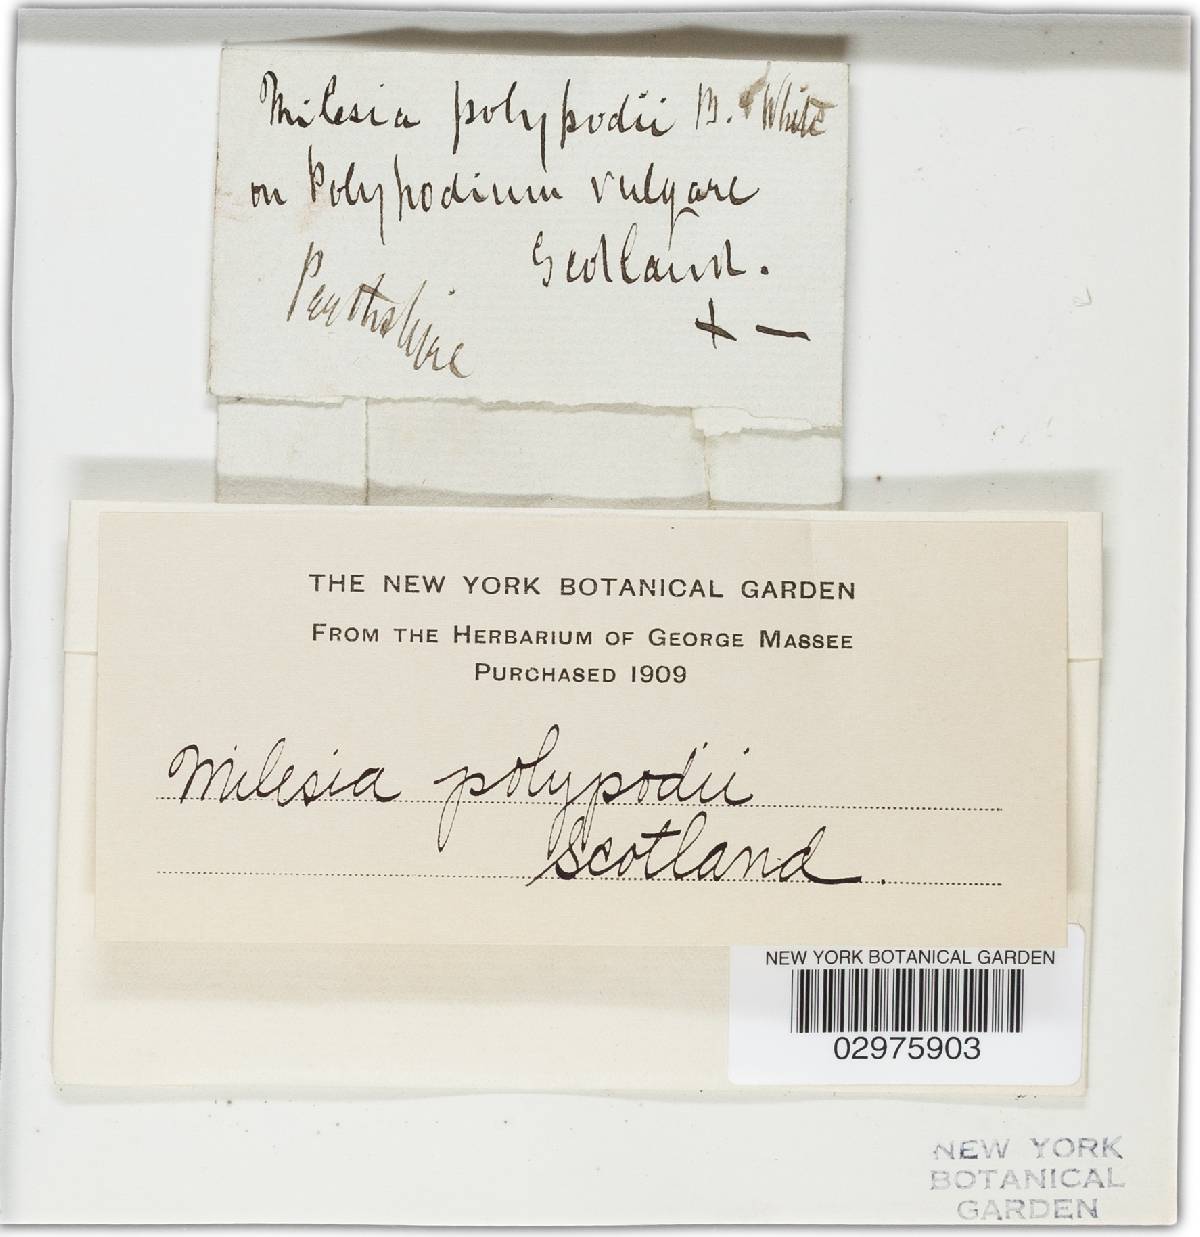 Milesia polypodii B. White
on Polypodium vulgare
Scotland.
Perthshire
+ —
THE NEW YORK BOTANICAL GARDEN
FROM THE HERBARIUM OF GEORGE MASSEE
PURCHASED 1909
Milesia polypodii
Scotland.
NEW YORK BOTANICAL GARDEN
02975903
NEW YORK
BOTANICAL
GARDEN